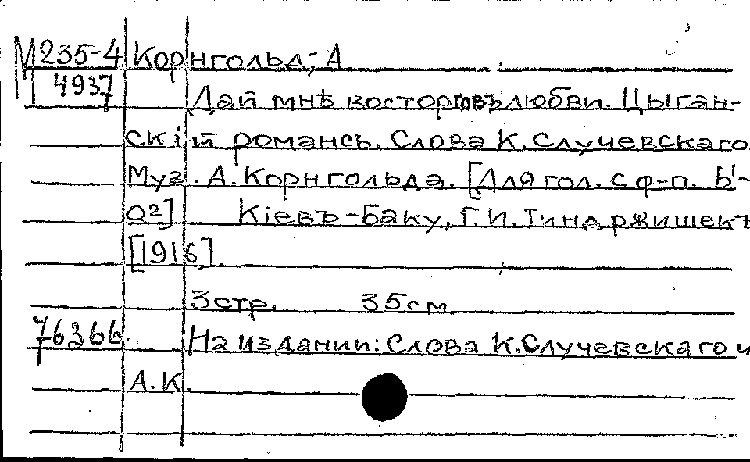 М 235-4 Корнгольд, А.
4937 Дай мнѣ восторговъ любви. Цыган-
скій романсъ. Слова К. Случевскаго
Муз. А. Корнгольда. [Для гол. с ф-п. h¹-
a²] Кіевъ-Баку, Г. И. Тиндржишекъ
[1916].
3 стр. 35 см.
76366. На издании: Слова К. Случевскаго и
А. К.